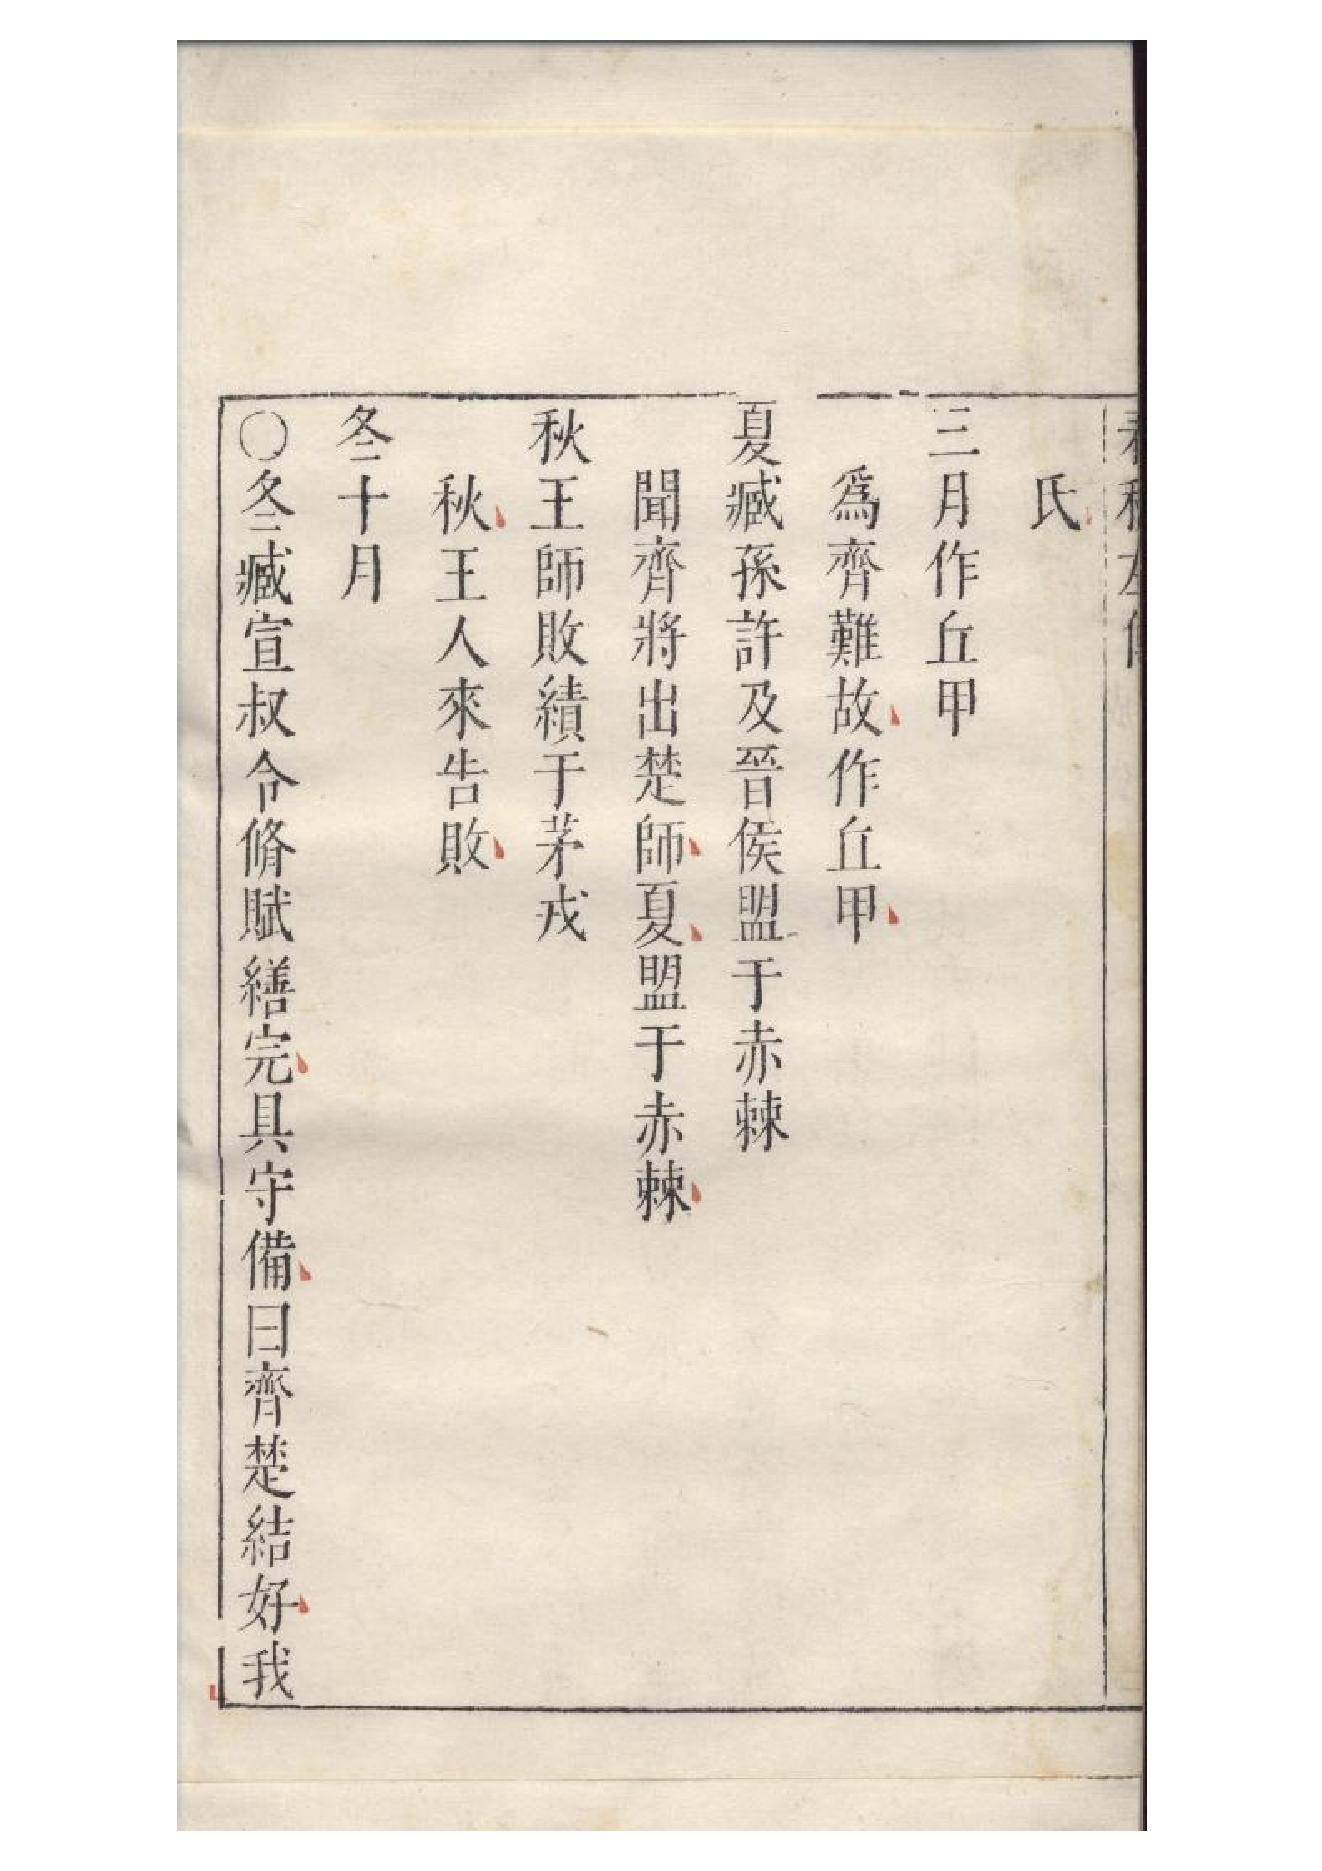 春秋左傳
氏
三月作丘甲
爲齊難故作丘甲
夏臧孫許及晉侯盟于赤棘
聞齊將出楚師夏盟于赤棘
秋王師敗績于茅戎
秋王人來告敗
冬十月
〇冬臧宣叔令脩賦繕完具守備曰齊楚結好我